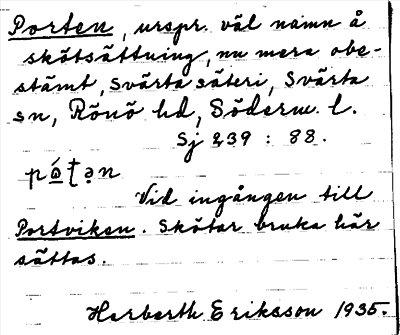 Porten, urspr. väl namn å
skötsättning, nu mera obe-
stämt, Svärta säteri, Svärta
sn, Rönö hd, Söderm. l.
Sj 239 : 88.
Vid ingången till
Portviken. Skötar bruka här
sättas.
Herberth Eriksson 1935.